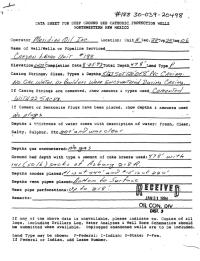 #1188 30-039-20498
DATA SHEET FOR DEEP GROUND BED CATHODIC PROTECTION WELLS
NORTHWESTERN NEW MEXICO
Operator Meridian Oil Inc. Location: Unit Sec. Twp Rng
Name of Well/Wells or Pipeline Serviced
Canyon Largo Unit #188
Elevation Completion Date Total Depth 478' Land Type
Casing Strings, Sizes, Types & Depths
NO GAS, WATER, or Boulders Were Encountered During Casing.
If Casing Strings are cemented, show amounts & types used Cemented
WITH 22 SACKS.
If Cement or Bentonite Plugs have been placed, show depths & amounts used
Depths & thickness of water zones with description of water: Fresh, Clear,
Salty, Sulphur, Etc.
Depths gas encountered: no gas
Ground bed depth with type & amount of coke breeze used: 478' with
sacks of Asbury 218 R.
Depths anodes placed:
Depths vent pipes placed: Bottom to Surface
Vent pipe perforations: Up to 218'.
RECEIVED
Remarks: JAN 31 1994
OIL CON. DIV.
DIST. 3
If any of the above data is unavailable, please indicate so. Copies of all
logs, including Drillers Log, Water Analyses & Well Bore Schematics should
be submitted when available. Unplugged abandoned wells are to be included.
*Land Type may be shown: F-Federal; I-Indian; S-State; P-Fee.
If Federal or Indian, add Lease Number.